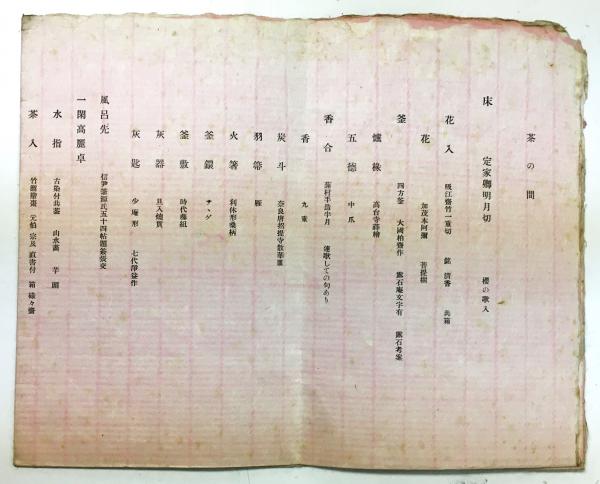 茶の間
床 定家卿明月切 櫻の歌入
花入 吸江齋竹一重切 銘 清香 共箱
花 加茂本阿彌 菩提樹
釜 四方釜 大國柏齋作 露石庵文字有 露石考案
爐椽 高台寺蒔繪
五德 中爪
香合 蕪村手造半月 蓮歌しての句あり
香 九重
炭斗 奈良唐招提寺散華籠
羽箒 雁
火箸 利休形桑柄
釜鐶 サヾゲ
釜敷 時代藤組
灰器 且入燒貫
灰匙 少庵形 七代淨益作
風呂先 信尹筆源氏五十四帖題簽張交
一閑高麗卓
水指 古染付共蓋 山水畵 芋頭
茶入 竹繪挽棗 元伯 宗及 直書付 箱 碌々齋